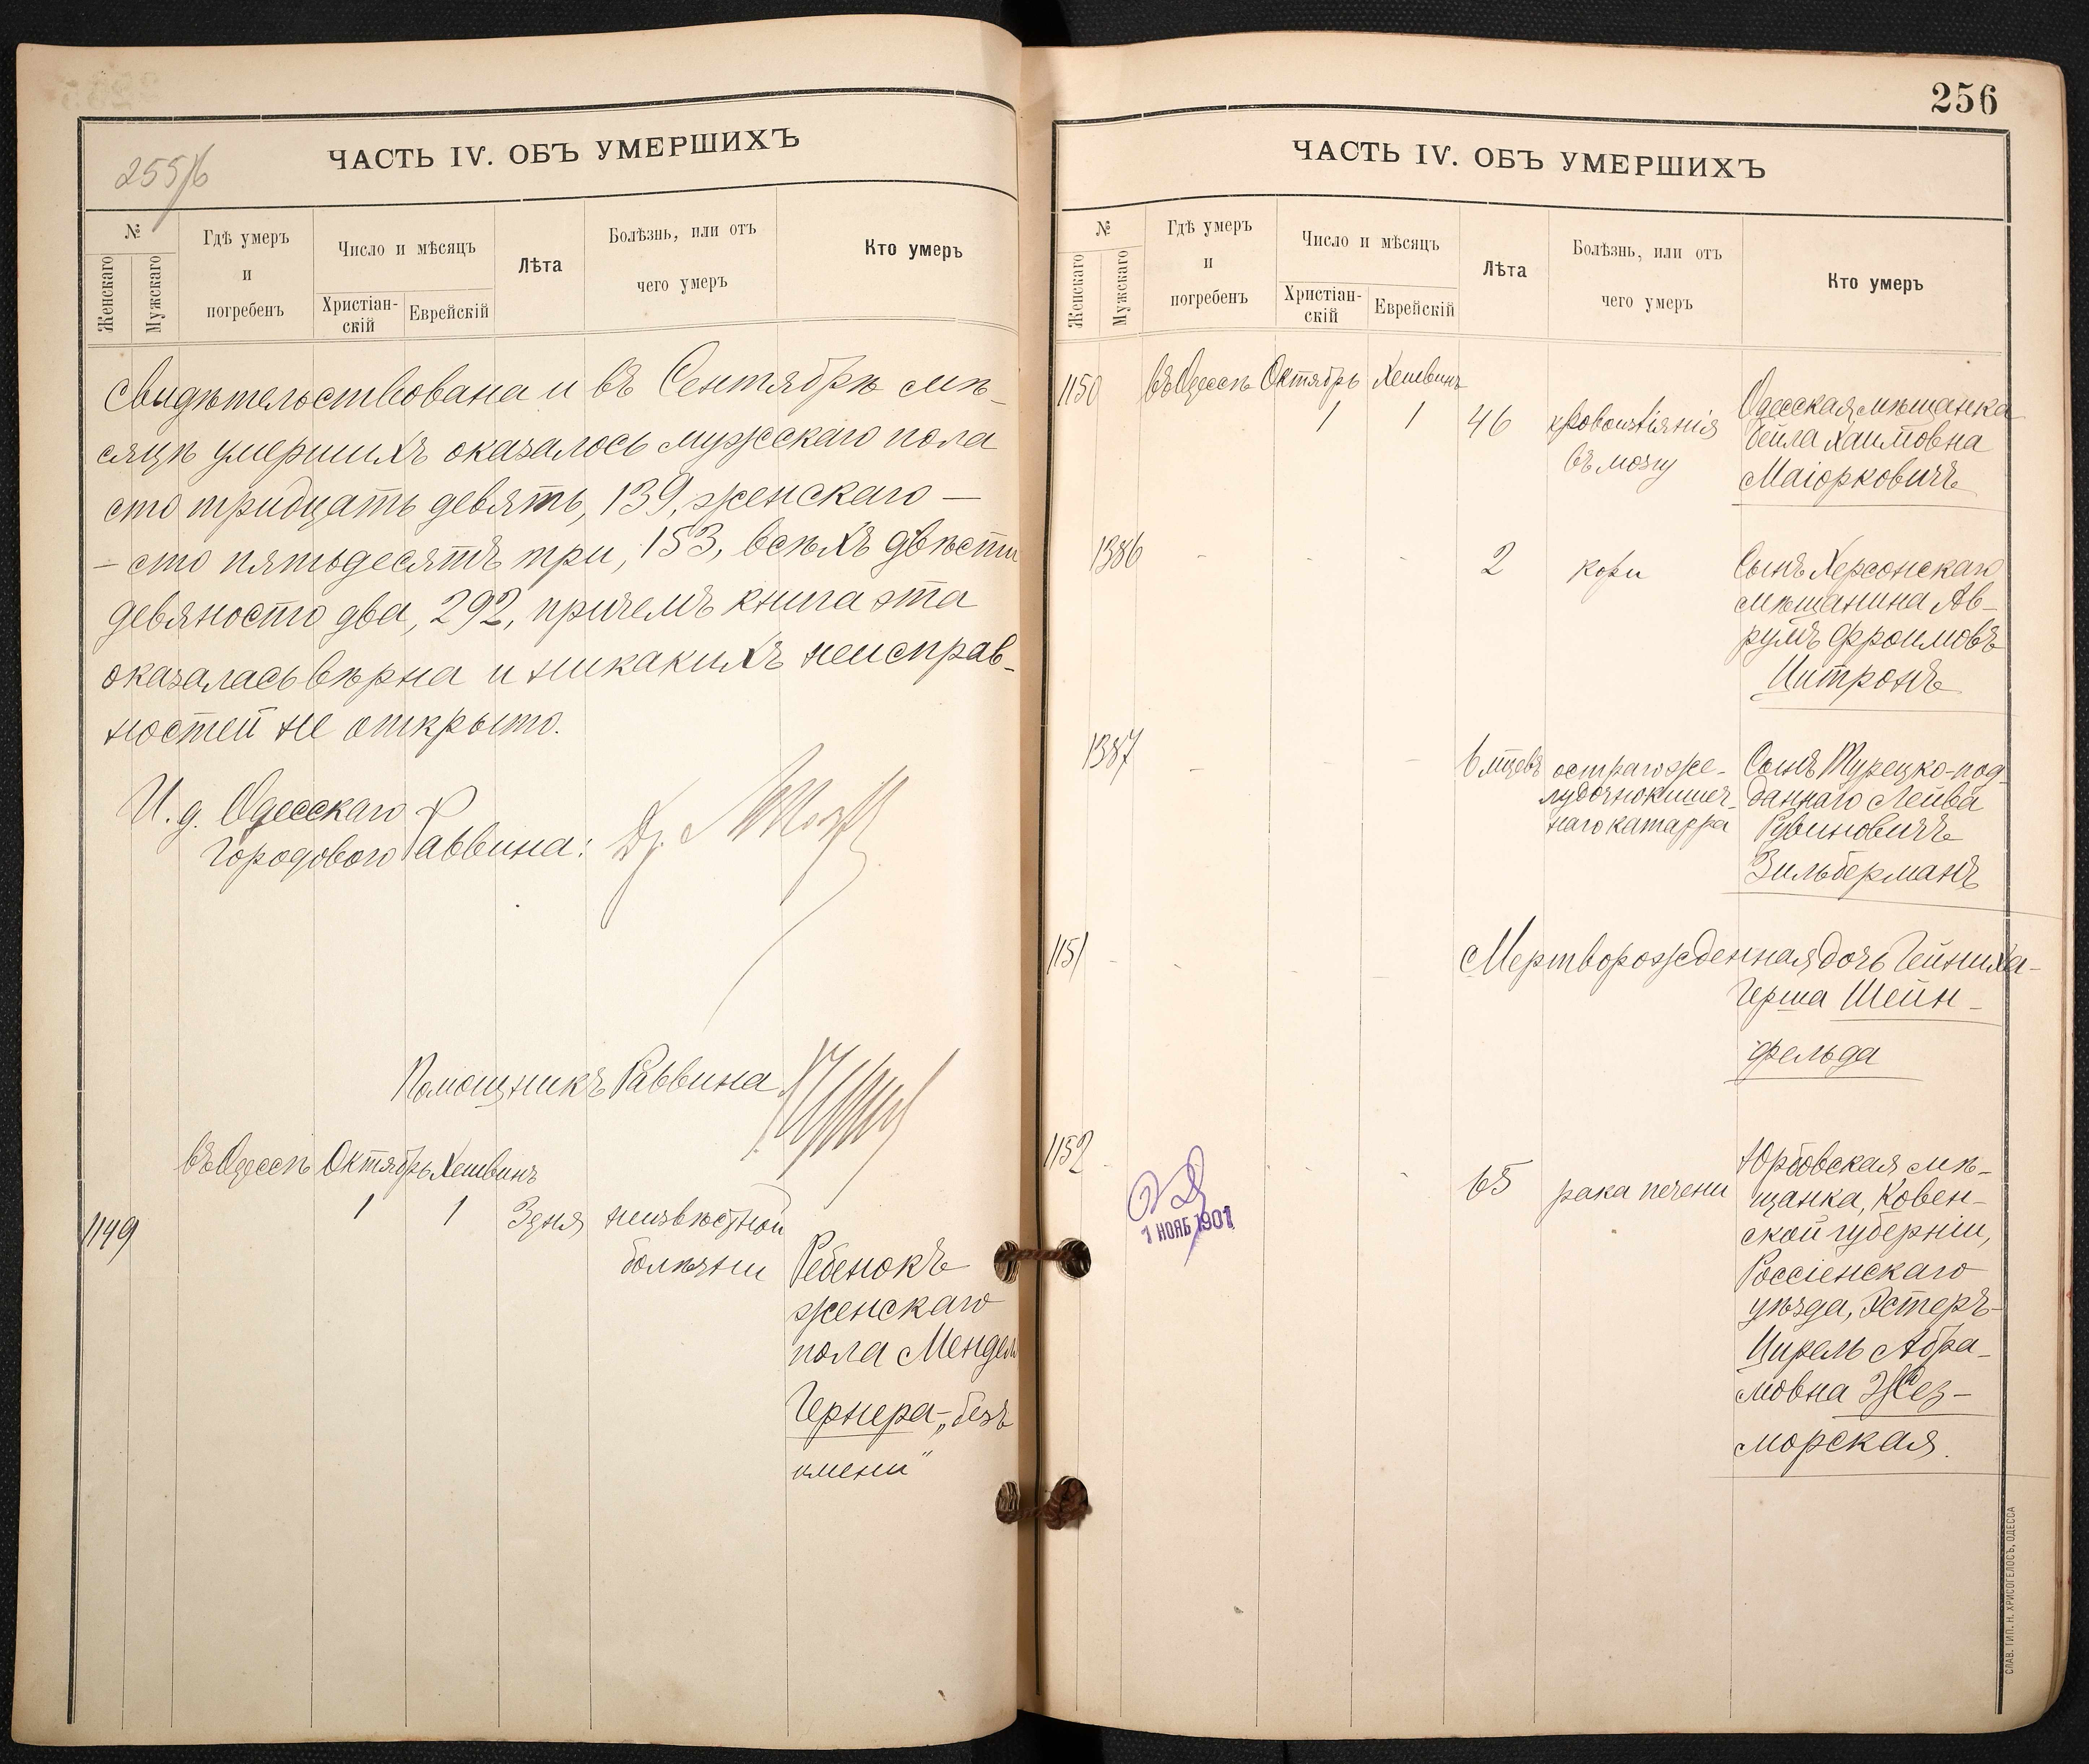 255/б
ЧАСТЬ IV. ОБЪ УМЕРШИХЪ
№
Женскаго
Мужскаго
Гдѣ умеръ
и
погребенъ
Число и мѣсяцъ
Христіан-
скій
Еврейскій
Лѣта
Болѣзнь, или отъ
чего умеръ
Кто умеръ
свидѣтельствована и въ Сентябрѣ мѣ-
сяцѣ умершихъ оказалось мужскаго пола
сто тридцать девять, 139, женскаго —
— сто пятьдесятъ три, 153, всѣхъ двѣсти
девяносто два, 292, причемъ книга эта
оказалась вѣрна и никакихъ неисправ-
ностей не открыто.
И. д. Одесскаго
Городового Раввина: Dr.
Помощникъ Раввина
въ Одессѣ Октябрь Хешвинъ
1149 1 1 3 дня неизвѣстной
болѣзни
Ребенокъ
женскаго
пола Мендель
Гернера-„безъ
имени"
256
ЧАСТЬ IV. ОБЪ УМЕРШИХЪ
№
Женскаго
Мужскаго
Гдѣ умеръ
и
погребенъ
Число и мѣсяцъ
Христіан-
скій
Еврейскій
Лѣта
Болѣзнь, или отъ
чего умеръ
Кто умеръ
1150 въ Одессѣ Октябрь Хешвинъ
1 1 46 кровоизліянія
въ мозгу
Одесская мѣщанка
Бейла Хаимовна
Маіорковичъ
1386 - - - 2 кори
Сынъ Херсонскаго
мѣщанина Ав-
румъ Фроимовъ
Цитронъ
1387 - - - 6 мцевъ остраго же-
лудочнокишеч-
наго катарра
Сынъ Турецко-под
даннаго Лейба
Рувиновичъ
Зильберманъ
1151 - - - Мертворожденная дочь Гейниха-
Герша Шейн-
фельда
1152 - - - 65 рака печени
Юрбовская мѣ-
щанка, Ковен-
ской губерніи,
Россіенскаго
уѣзда, Эстеръ-
Цирель Абра-
мовна Жез-
морская.
1 НОЯБ 1901
СЛАВ. ТИП. Н. ХРИСОГЕЛОСЪ, ОДЕССА